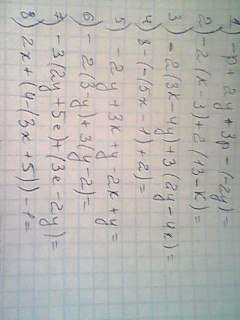 1) -p + 2y + 3p - (-2y) =
2) -2(k - 3) + 2(13 - k) =
3) -2(3x - 4y) + 3(2y - 4x) =
4) 8 - (-(5x - 1) + 2) =
5) -2y + 3x + y - 2x + y =
6) -2(3y) + 3(y - 2) =
7) -3(2y + 5e) + (3e - 2y) =
8) 2x + (4 - (3x + 5)) - 1 =